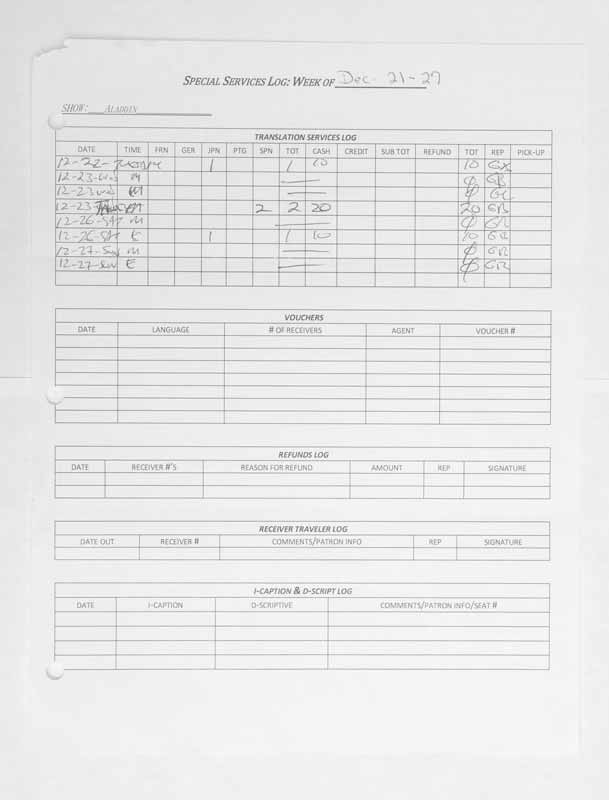 SPECIAL SERVICES LOG: WEEK OF Dec. 21-27
SHOW: ALADDIN
TRANSLATION SERVICES LOG
DATE TIME FRN GER JPN PTG SPN TOT CASH CREDIT SUB TOT REFUND TOT REP PICK-UP
12-22- 1 1 10 10
12-23-wed M — ϕ GR
12-23 wed — ϕ
12-23 2 2 20 20 GR
12-26-SAt M — ϕ GR
12-26-SAt E 1 1 10 10 GR
12-27-Sun M — ϕ GR
12-27-Sun E — ϕ GR
VOUCHERS
DATE LANGUAGE # OF RECEIVERS AGENT VOUCHER #
REFUNDS LOG
DATE RECEIVER #'S REASON FOR REFUND AMOUNT REP SIGNATURE
RECEIVER TRAVELER LOG
DATE OUT RECEIVER # COMMENTS/PATRON INFO REP SIGNATURE
I-CAPTION & D-SCRIPT LOG
DATE I-CAPTION D-SCRIPTIVE COMMENTS/PATRON INFO/SEAT #